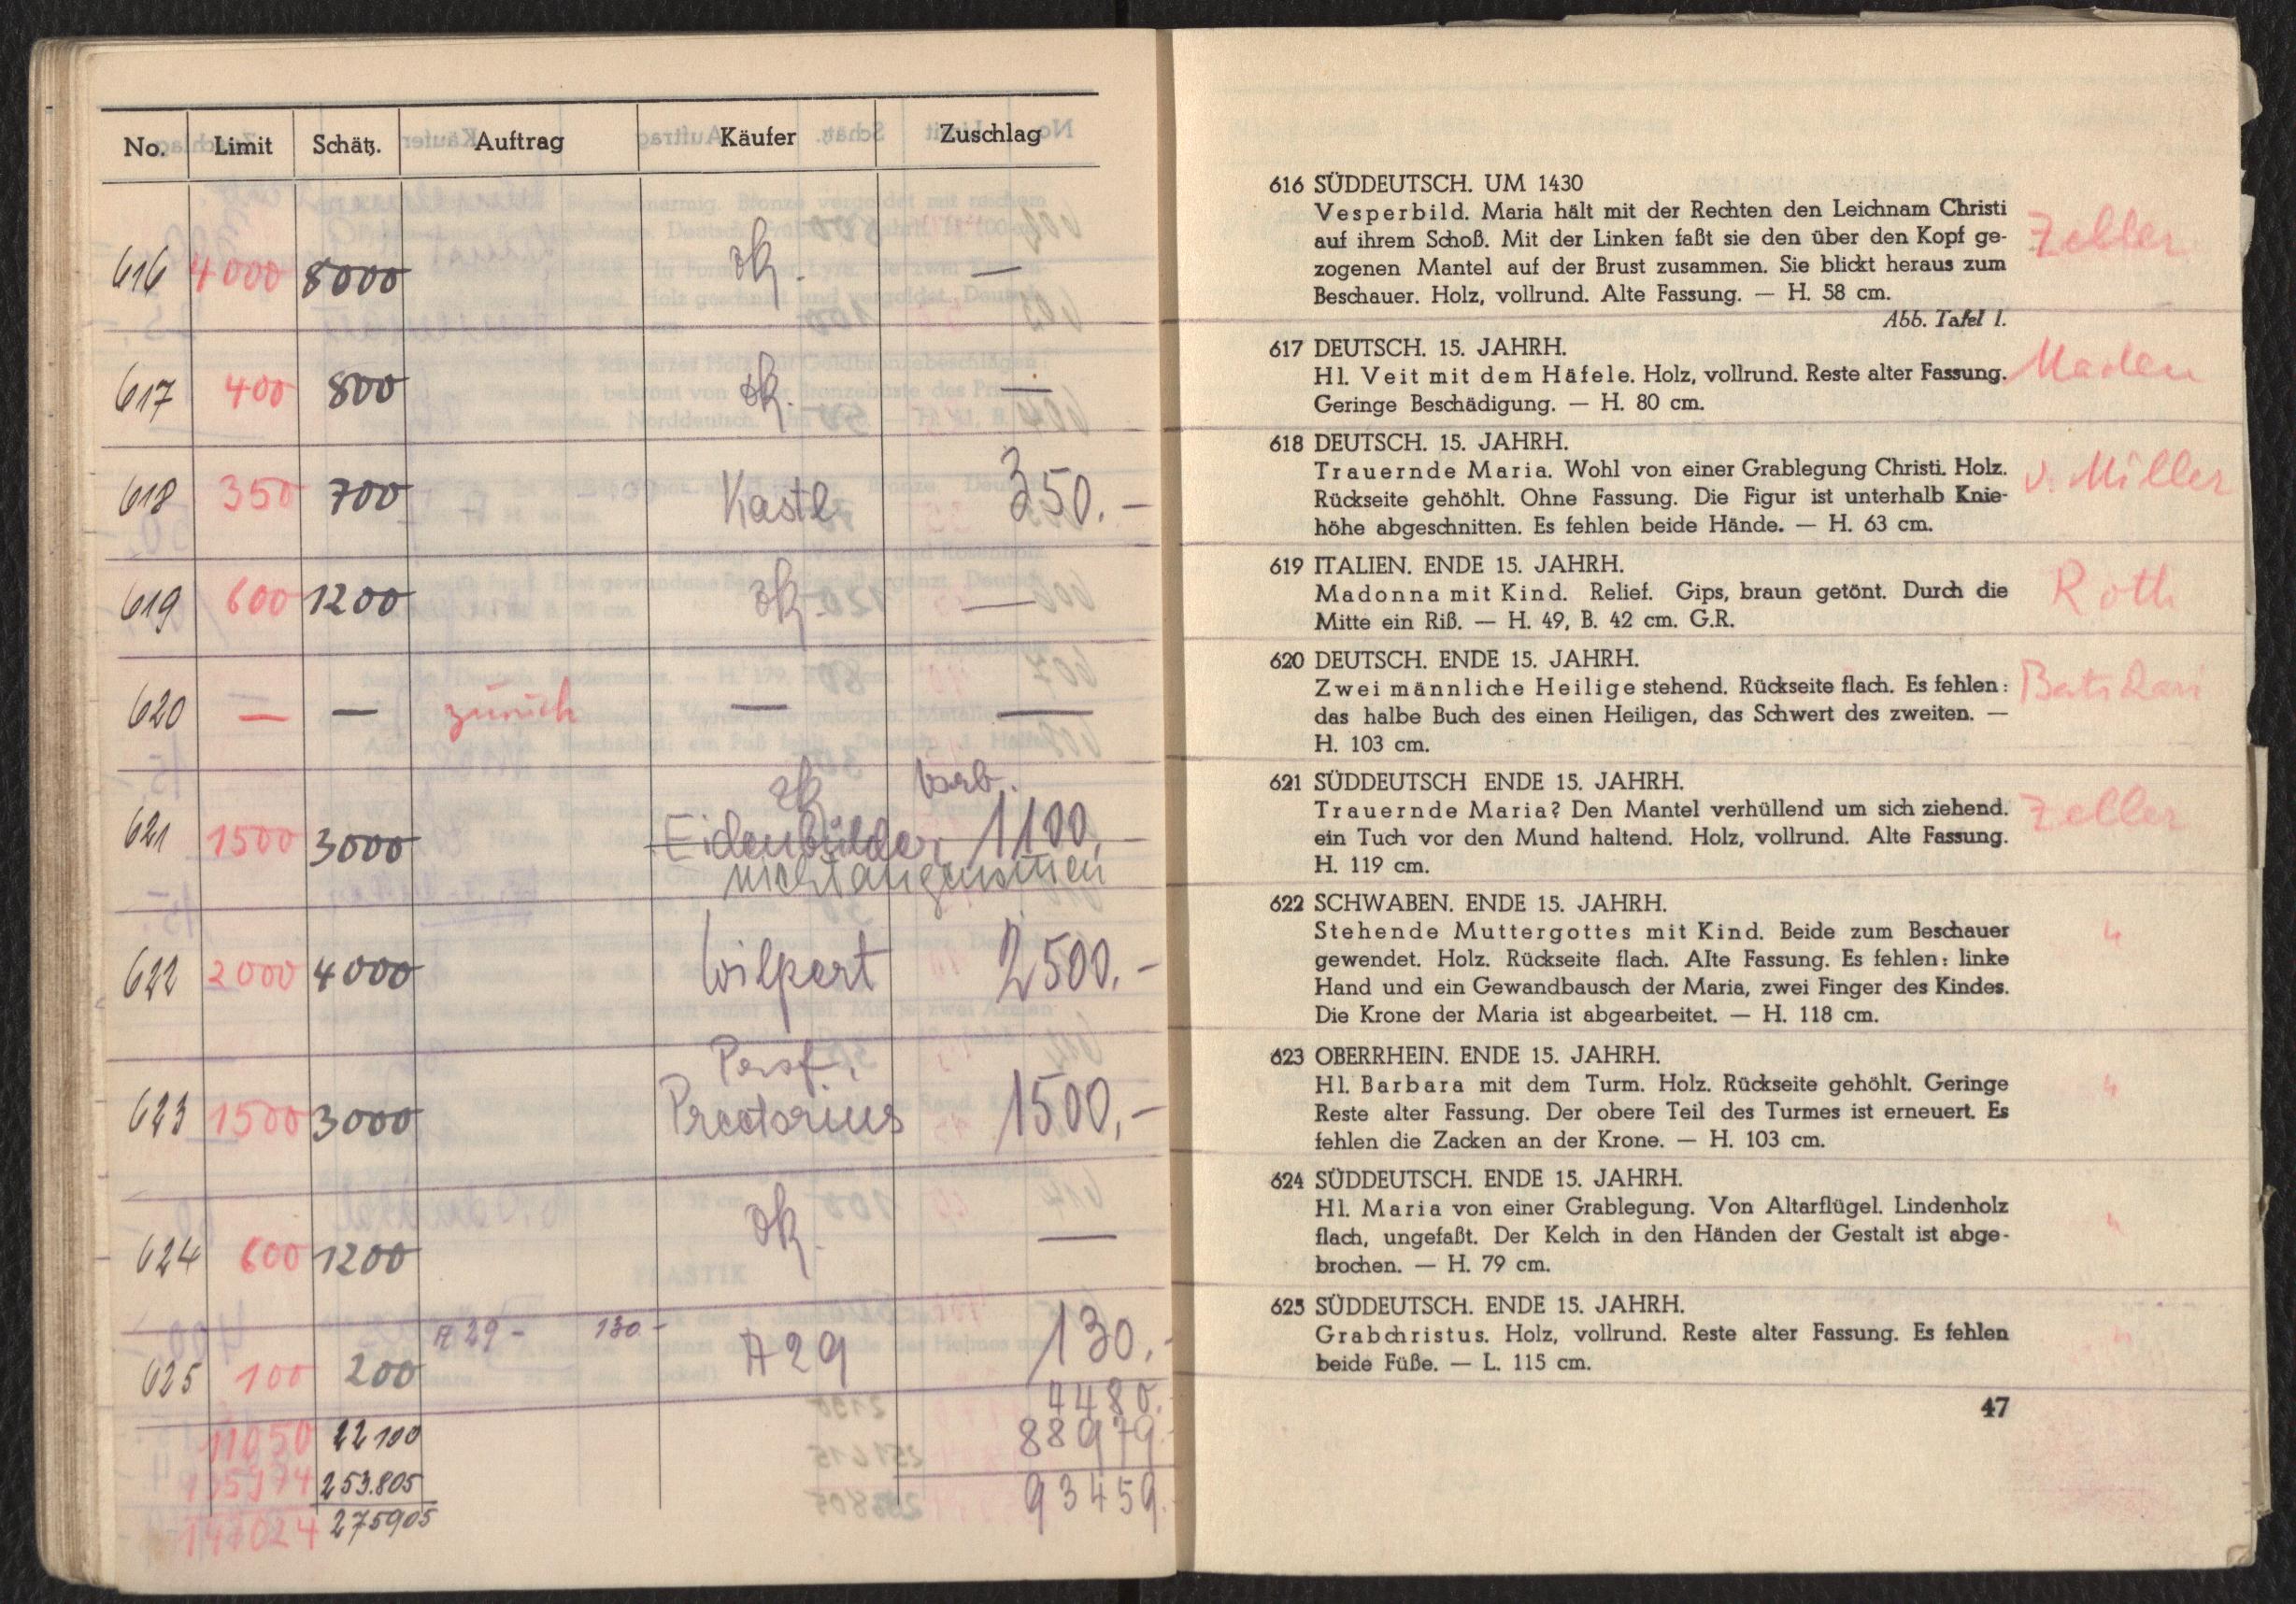 No. Limit Schätz. Auftrag Käufer Zuschlag
616 4000 8000 —
617 400 800 —
618 350 700 Kastl 350.-
619 600 1200 —
620 — — zurück — —
Vorb.
621 1500 3000 Eidenbülder 1100.
nicht angenommen
622 2000 4000 Wilpert 2500.-
Prof.
623 1500 3000 Praetorius 1500,-
624 600 1200 —
A 29 - 130 -
625 100 200 A 29 130.-
4480.
11050 22100 88979.
253.805 93459.
147024 275905
616 SÜDDEUTSCH. UM 1430
Vesperbild. Maria hält mit der Rechten den Leichnam Christi
auf ihrem Schoß. Mit der Linken faßt sie den über den Kopf ge- Zeller
zogenen Mantel auf der Brust zusammen. Sie blickt heraus zum
Beschauer. Holz, vollrund. Alte Fassung. — H. 58 cm.
Abb. Tafel 1.
617 DEUTSCH. 15. JAHRH.
Hl. Veit mit dem Häfele. Holz, vollrund. Reste alter Fassung.
Geringe Beschädigung. — H. 80 cm.
618 DEUTSCH. 15. JAHRH.
Trauernde Maria. Wohl von einer Grablegung Christi. Holz. v. Miller
Rückseite gehöhlt. Ohne Fassung. Die Figur ist unterhalb Knie-
höhe abgeschnitten. Es fehlen beide Hände. — H. 63 cm.
619 ITALIEN. ENDE 15. JAHRH.
Madonna mit Kind. Relief. Gips, braun getönt. Durch die Roth
Mitte ein Riß. — H. 49, B. 42 cm. G.R.
620 DEUTSCH. ENDE 15. JAHRH.
Zwei männliche Heilige stehend. Rückseite flach. Es fehlen:
das halbe Buch des einen Heiligen, das Schwert des zweiten. —
H. 103 cm.
621 SÜDDEUTSCH ENDE 15. JAHRH.
Trauernde Maria? Den Mantel verhüllend um sich ziehend. Zeller
ein Tuch vor den Mund haltend. Holz, vollrund. Alte Fassung.
H. 119 cm.
622 SCHWABEN. ENDE 15. JAHRH.
Stehende Muttergottes mit Kind. Beide zum Beschauer "
gewendet. Holz. Rückseite flach. Alte Fassung. Es fehlen: linke
Hand und ein Gewandbausch der Maria, zwei Finger des Kindes.
Die Krone der Maria ist abgearbeitet. — H. 118 cm.
623 OBERRHEIN. ENDE 15. JAHRH.
Hl. Barbara mit dem Turm. Holz. Rückseite gehöhlt. Geringe "
Reste alter Fassung. Der obere Teil des Turmes ist erneuert. Es
fehlen die Zacken an der Krone. — H. 103 cm.
624 SÜDDEUTSCH. ENDE 15. JAHRH.
Hl. Maria von einer Grablegung. Von Altarflügel. Lindenholz "
flach, ungefaßt. Der Kelch in den Händen der Gestalt ist abge-
brochen. — H. 79 cm.
625 SÜDDEUTSCH. ENDE 15. JAHRH.
Grabchristus. Holz, vollrund. Reste alter Fassung. Es fehlen "
beide Füße. — L. 115 cm.
47